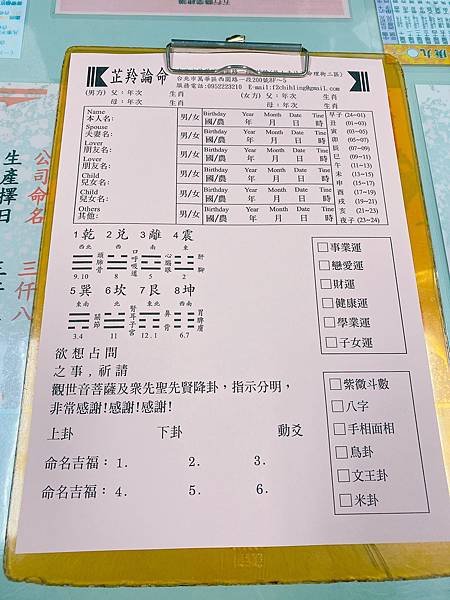 芷羚論命
命理街二區)
台北市萬華區西園路一段200號8F～5
服務電話:0952223210 E-mail:f2chihling@gmail.com
(男方) 父：年次 生肖 (女方) 父：年次 生肖
母：年次 生肖 母：年次 生肖
Name 本人名: 男/女 Birthday 國/農 Year 年 Month 月 Date 日 Tine 時
Spouse 夫妻名: 男/女 Birthday 國/農 Year 年 Month 月 Date 日 Tine 時
Lover 朋友名: 男/女 Birthday 國/農 Year 年 Month 月 Date 日 Tine 時
Lover 朋友名: 男/女 Birthday 國/農 Year 年 Month 月 Date 日 Tine 時
Child 兒女名: 男/女 Birthday 國/農 Year 年 Month 月 Date 日 Tine 時
Child 兒女名: 男/女 Birthday 國/農 Year 年 Month 月 Date 日 Tine 時
Others 其他: 男/女 Birthday 國/農 Year 年 Month 月 Date 日 Tine 時
早子(24~01)
丑 (01~03)
寅 (03~05)
卯 (05~07)
辰 (07~09)
巳 (09~11)
午 (11~13)
未 (13~15)
申 (15~17)
酉 (17~19)
戌 (19~21)
亥 (21~23)
夜子(23~24)
1乾 2兌 3離 4震
西北 西 南 東
頭肺骨 口呼吸道 心腦眼 肝腳
9.10 8 5 2
5巽 6坎 7艮 8坤
東南 北 東北 西南
頭節 腎耳子宮 鼻背 胃脾膚
3.4 11 12.1 6.7
□事業運
□戀愛運
□財運
□健康運
□學業運
□子女運
欲想占問
之事,祈請
觀世音菩薩及眾先聖先賢降卦，指示分明，
非常感謝!感謝!感謝!
上卦 下卦 動爻
命名吉福：1. 2. 3.
命名吉福：4. 5. 6.
□紫微斗數
□八字
□手相面相
□鳥卦
□文王卦
□米卦
公司命名
三仟八
生產擇日